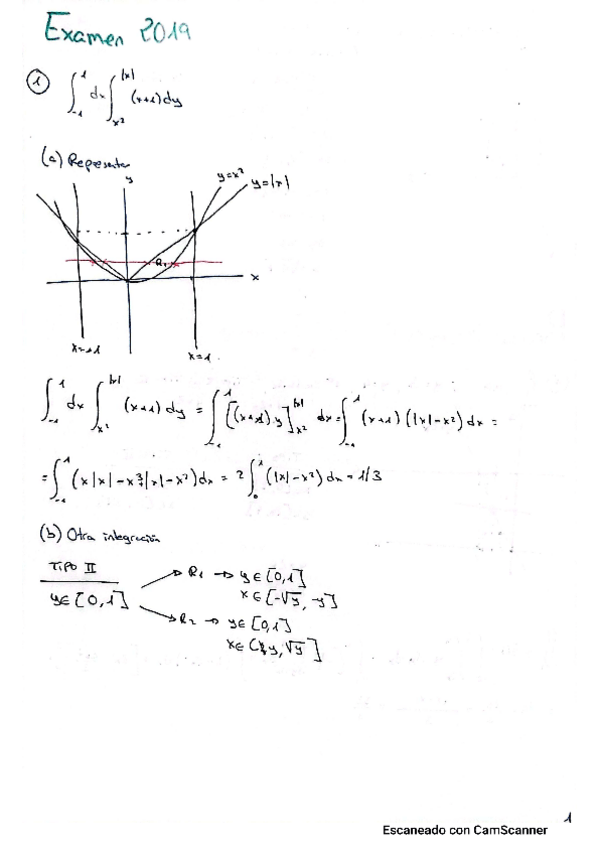 Examen 2019
① ∫₋₁¹ dx ∫ₓ²^|x| (x+1) dy
(a) Representar
y
y=x²
y=|x|
R₁
x
x=-1
x=1
∫₋₁¹ dx ∫ₓ²^|x| (x+1) dy = ∫₋₁¹ [(x+1) y]ₓ²^|x| dx = ∫₋₁¹ (x+1) (|x|-x²) dx =
= ∫₋₁¹ (x|x| - x³ |x| - x²) dx = 2 ∫₀¹ (|x|-x²) dx = 1/3
(b) Otra integración
TIPO II
y∈[0,1]
→ R₁ → y∈[0,1]
x∈[-√y, -y]
→ R₂ → y∈[0,1]
x∈[y, √y]
1
Escaneado con CamScanner